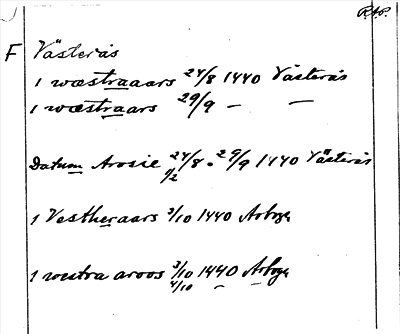 R.A.P.
F Västerås
i wæstraaars 24/8 1440 Västerås
i wæstraars 29/9 — —
Datum Arosie 24/8 . 29/9 1440 Västerås
1/2
i Vestheraars 3/10 1440 Arboga
i westra aroos 3/10 1440 Arboga
4/10 — —